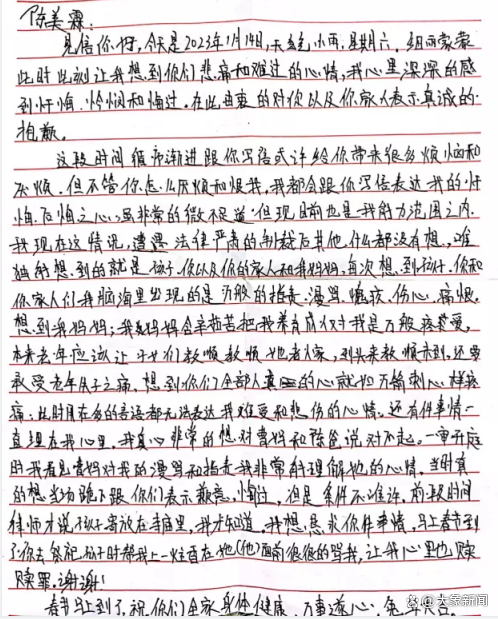 陈美霖:
见信你好,今天是2023年1月14日,天气小雨,星期六。细雨蒙蒙
此时此刻让我想到你们悲痛和难过的心情,我心里深深的感
到忏悔、怜悯和悔过。在此由衷的对你以及你家人表示真诚的
抱歉。
这段时间循序渐进跟你写信或许给你带来很多烦恼和
厌烦。但不管你怎么厌烦和恨我,我都会跟你写信表达我的忏
悔。后悔之心,虽非常的微不足道,但现目前也是我能力范围之内。
我现在这情况,遭遇法律严肃的制裁后其他什么都没有想,唯
独能想到的就是孩子、你以及你的家人和我妈妈,每次想到孩子、你和
你家人们我脑海里出现的是万般的指责、漫骂、愧疚、伤心、痛恨。
想到我妈妈,我妈妈含辛茹苦把我养育成人对我是万般疼爱。
本来老年应该让子女们孝顺孝顺她老人家,到头来孝顺未到,还要
承受老年失子之痛。想到你们全部人真的心就如万箭刺心一样疼
痛,此时自在多的言语都无法表达我难受和悲伤的心情。还有件事情一
直埋在我心里,我真心非常的想对袁妈和陈爸说对不起。一审开庭
时我看见袁妈对我的漫骂和指责我非常能理解她的心情,当时真
的想当场跪下跟你们表示歉意、悔过,但是条件不准许。前段时间
律师才说孩子寄放在寺庙里,我才知道。我想恳求你件事情,马上春节到
了你去祭祀孩子时帮我上一炷香在她(他)面前狠狠的骂我,让我心里也赎
赎罪。谢谢!
春节马上到了,祝你们全家身体健康、万事遂心、兔年大吉。
@大象新闻